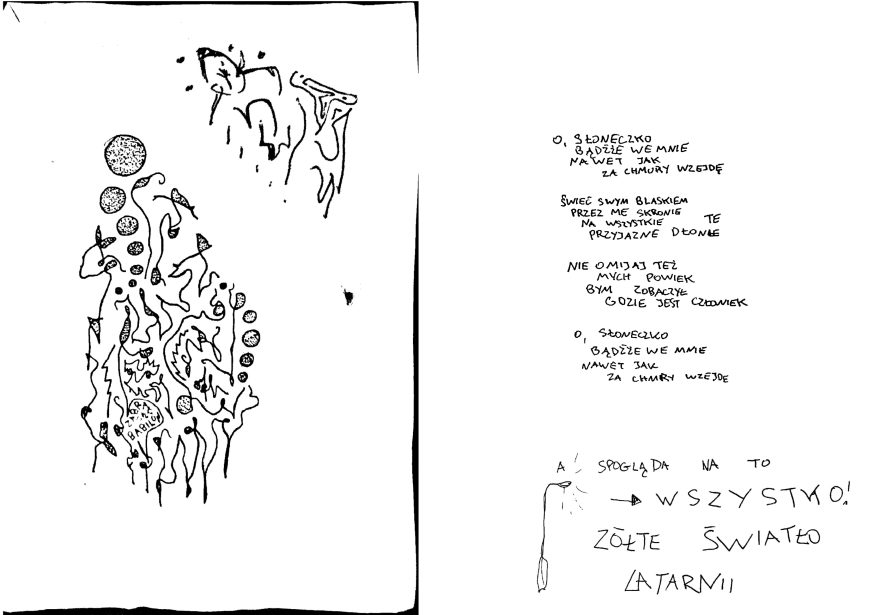 ZABRAŁ
BABILON
O, SŁONECZKO
BĄDŹŻE WE MNIE
NAWET JAK
ZA CHMURY WZEJDĘ
ŚWIEĆ SWYM BLASKIEM
PRZEZ ME SKRONIE
NA WSZYSTKIE TE
PRZYJAZNE DŁONIE
NIE OMIJAJ TEŻ
MYCH POWIEK
BYM ZOBACZYŁ
GDZIE JEST CZŁOWIEK
O, SŁONECZKO
BĄDŹŻE WE MNIE
NAWET JAK
ZA CHMURY WZEJDĘ
A SPOGLĄDA NA TO
WSZYSTKO!
ŻÓŁTE ŚWIATŁO
LATARNII